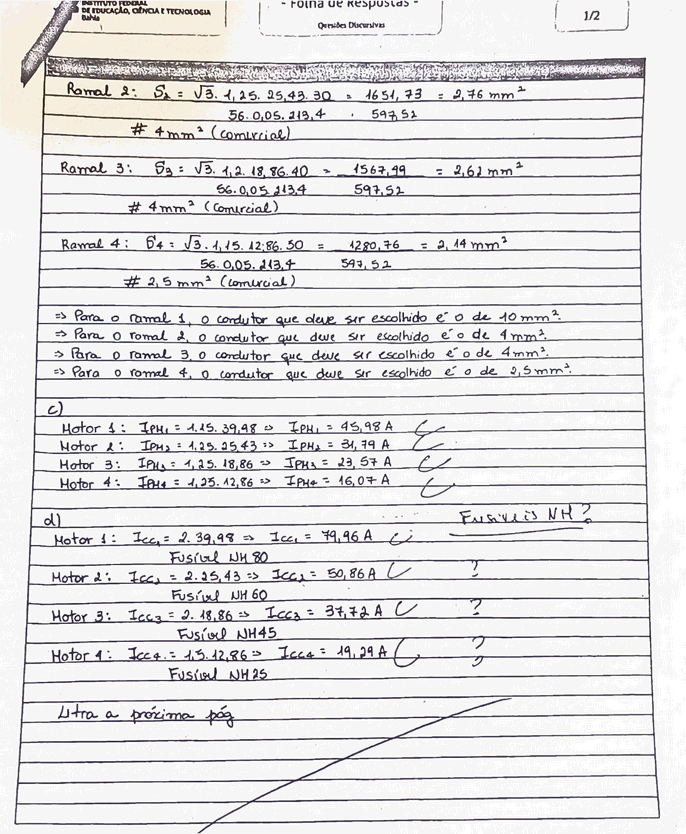 INSTITUTO FEDERAL
DE EDUCAÇÃO, CIÊNCIA E TECNOLOGIA
Bahia
- Folha de Respostas -
Questões Discursivas
1/2
Ramal 2: S₂ = √3. 1,25. 25,43. 30 = 1651,73 = 2,76 mm²
56. 0,05. 213,4 . 597,52
# 4mm² (comercial)
Ramal 3: S₃ = √3. 1,2. 18,86. 40 = 1567,99 = 2,62 mm²
56. 0,05. 213,4 597,52
# 4mm² (comercial)
Ramal 4: S₄ = √3. 1,15. 12,86. 50 = 1280,76 = 2,14 mm²
56. 0,05. 213,4 597,52
# 2,5 mm² (comercial)
=> Para o ramal 1, o condutor que deve ser escolhido é o de 10 mm².
=> Para o ramal 2, o condutor que deve ser escolhido é o de 4 mm².
=> Para o ramal 3, o condutor que deve ser escolhido é o de 4mm².
=> Para o ramal 4, o condutor que deve ser escolhido é o de 2,5mm².
c)
Motor 1: IPM₁ = 1,15. 39,98 => IPM₁ = 45,98 A
Motor 2: IPM₂ = 1,25. 25,43 => IPM₂ = 31,79 A
Motor 3: IPM₃ = 1,25. 18,86 => IPM₃ = 23,57 A
Motor 4: IPM₄ = 1,25. 12,86 => IPM₄ = 16,07 A
d) Fusíveis NH?
Motor 1: Icc₁ = 2. 39,98 => Icc₁ = 79,96 A
Fusível NH 80
Motor 2: Icc₂ = 2. 25,43 => Icc₂ = 50,86 A ?
Fusível NH 60
Motor 3: Icc₃ = 2. 18,86 => Icc₃ = 37,72 A ?
Fusível NH45
Motor 4: Icc₄ = 1,5. 12,86 => Icc₄ = 19,29 A ?
Fusível NH25 ?
a próxima pág